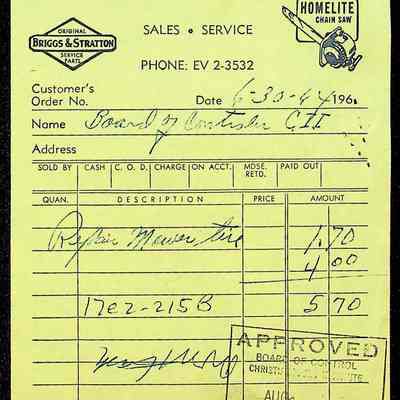 ORIGINAL
BRIGGS & STRATTON
SERVICE
PARTS
HOMELITE
CHAIN SAW
SALES • SERVICE
PHONE: EV 2-3532
Customer's
Order No.
Date 6-30-64 196
Name Board of Controls C.I.I
Address
SOLD BY CASH C. O. D. CHARGE ON ACCT. MDSE. RETD. PAID OUT
QUAN. DESCRIPTION PRICE AMOUNT
Repair Mower tire 1.70
4 00
17e2-215B 5 70
APPROVED
BOARD OF CONTROL